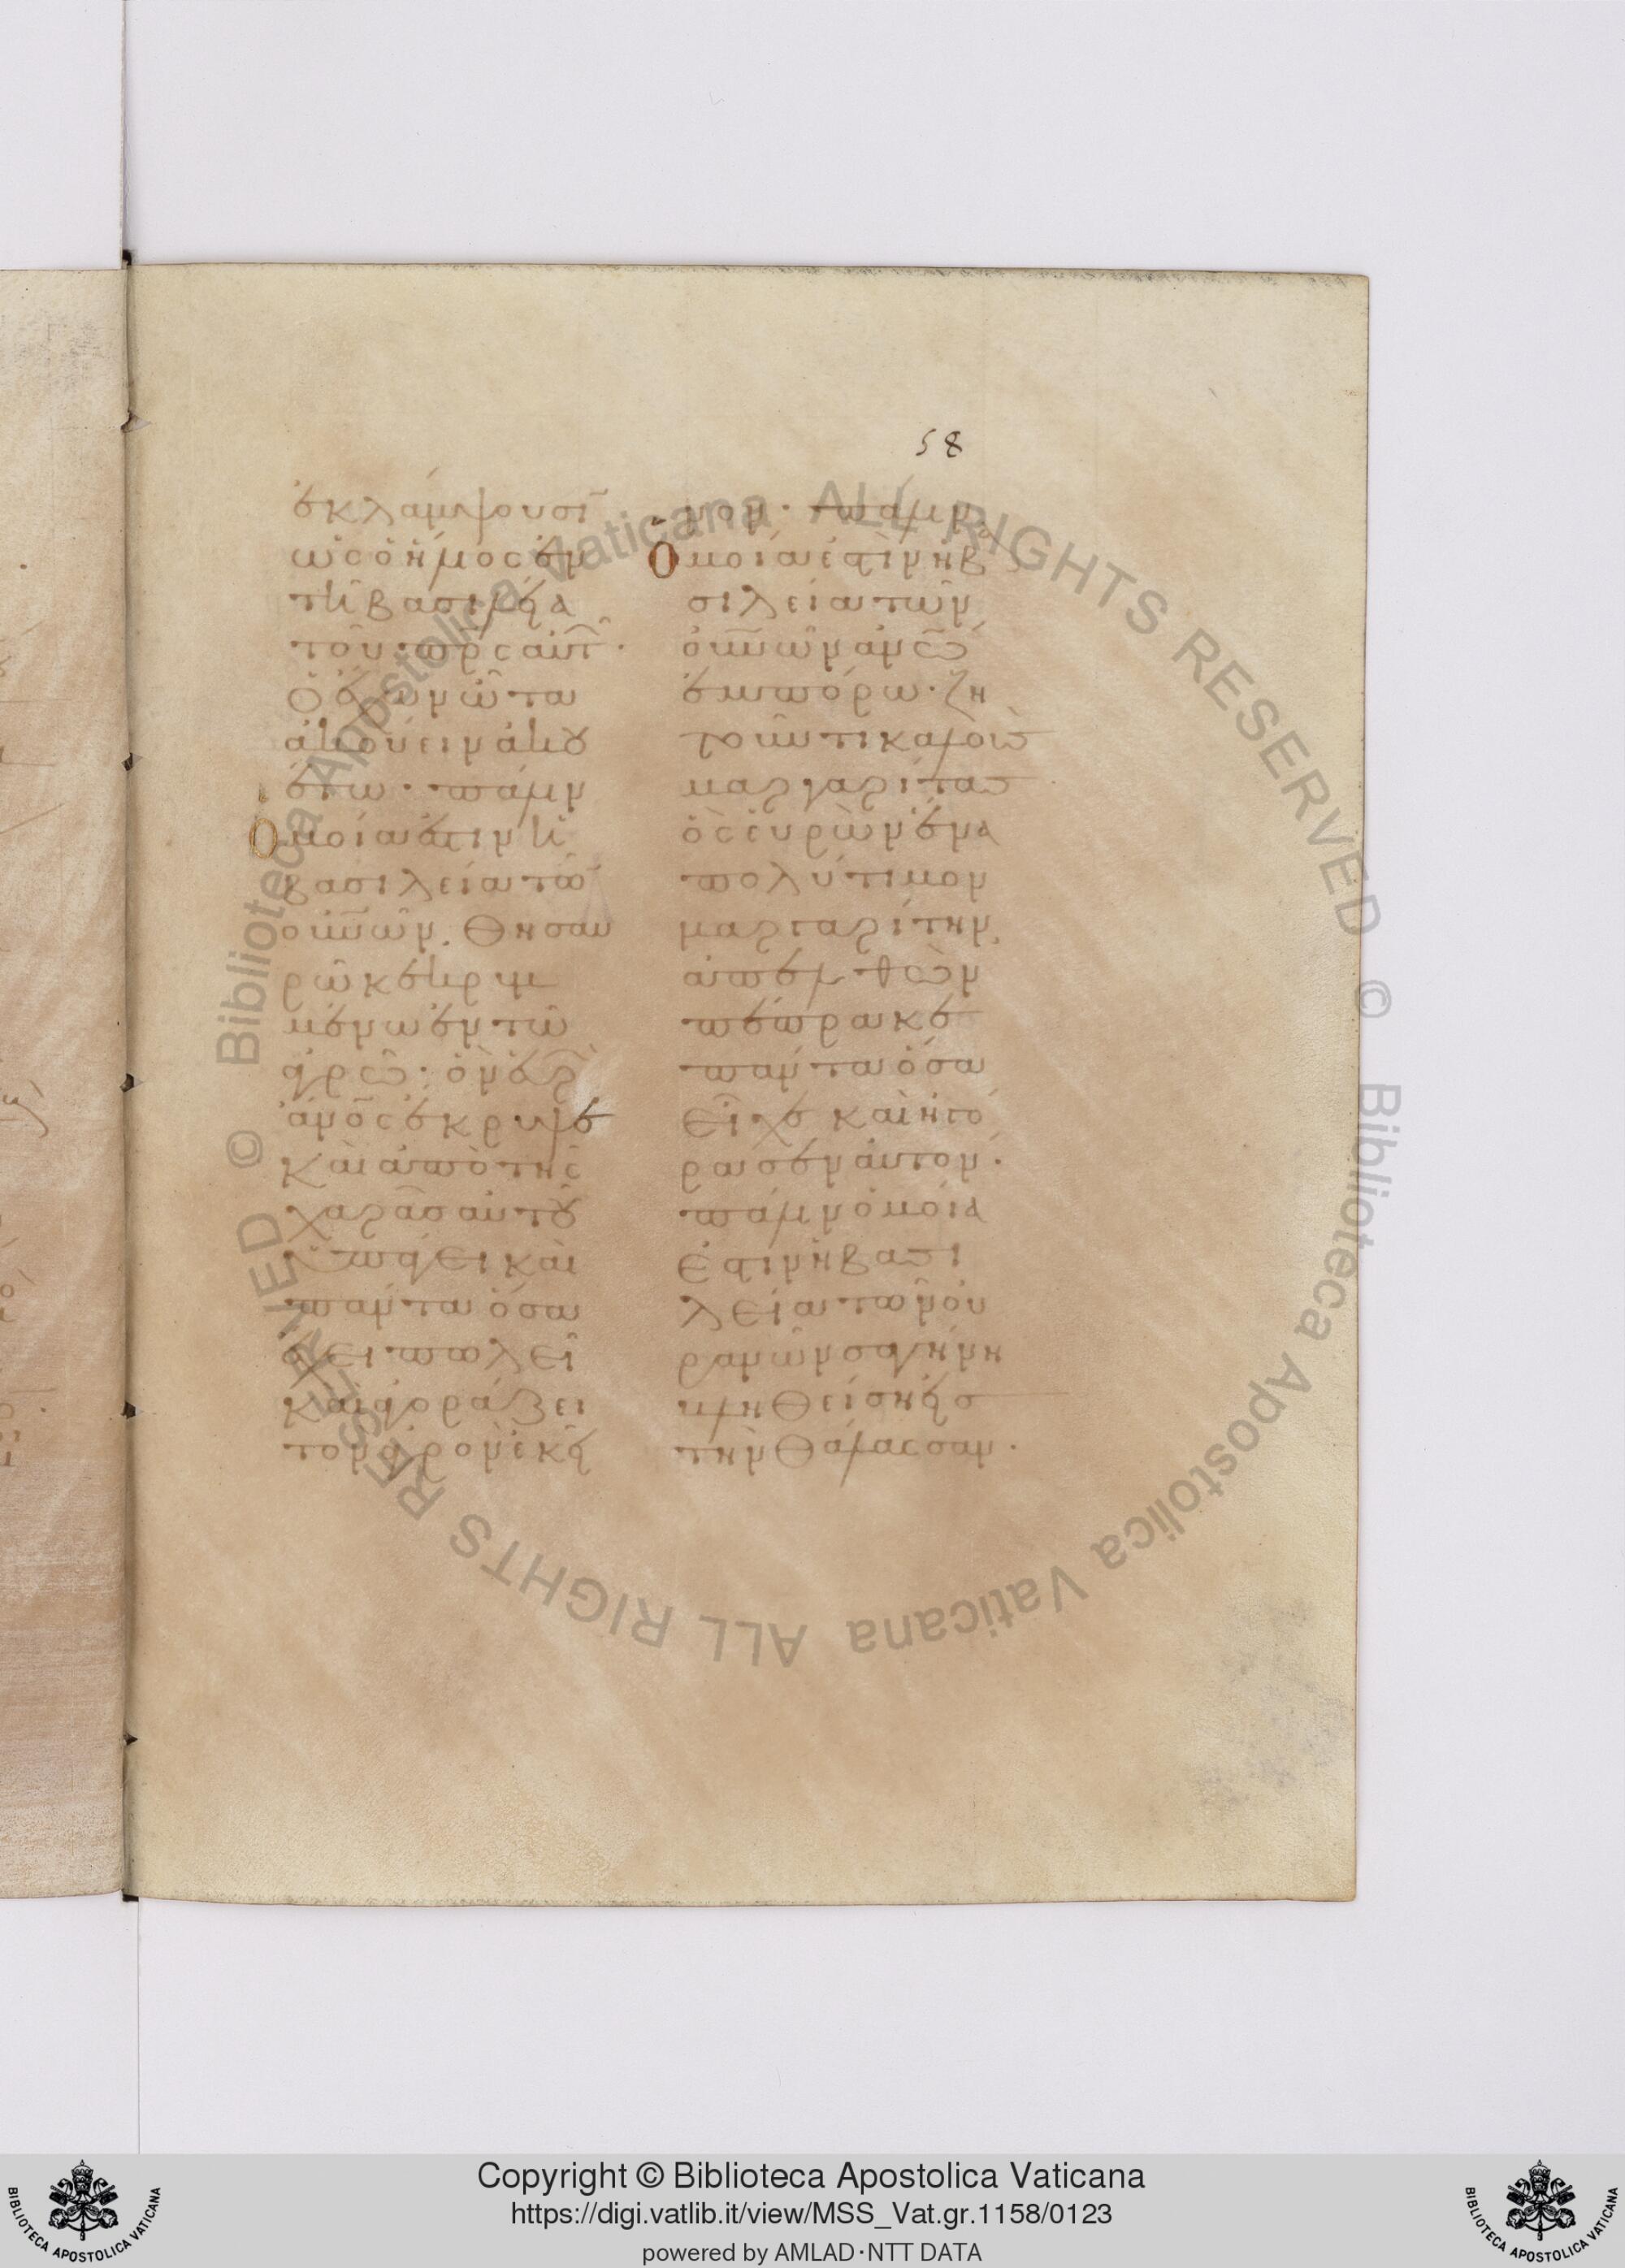 58
ἐκλάμψουσῑ
ὡς ὁ ἥλιος ἐν
τῆ βασιλεία
τοῦ π̅ρ̅ς αὐτ̑·
Ὁ ἔχων ὦτα
ἀκούειν ἀκου
έτω· πάλιν
Ὁμοία ἐστὶν ἡ
βασιλεία τῶ
ου̅νῶν. θησαυ
ρῶ κεκρυμ
μένω ἐν τῶ
ἀγρῶ· ὃν εὑρ
ἀν̅ο̅ς ἔκρυψε
καὶ ἀπὸ τῆς
χαρᾶς αὐτοῦ
ὑπάγει καὶ
πάντα ὅσα
ἔχει πωλεῖ
καὶ ἀγοράζει
τὸν ἀγρὸν ἐκεῖ
νον· πάλιν
Ὁμοία ἐστὶν ἡ βα
σιλεία τῶν
ου̅νῶν ἀν̅ω̅
ἐμπόρω· ζη
τοῦντι καλοὺς
μαργαρίτας
ὃς εὑρὼν ἕνα
πολύτιμον
μαργαρίτην,
ἀπελθὼν
πέπρακε
πάντα ὅσα
εἶχε καὶ ἠγό
ρασεν αὐτόν·
πάλιν ὁμοία
ἐστὶν ἡ βασι
λεία τῶν οὐ
ρανῶν σαγήνη
βληθείση εἰς
τὴν θάλασσαν·
© Biblioteca Apostolica Vaticana ALL RIGHTS RESERVED © Biblioteca Apostolica Vaticana ALL RIGHTS RESERVED
Copyright © Biblioteca Apostolica Vaticana
https://digi.vatlib.it/view/MSS_Vat.gr.1158/0123
powered by AMLAD·NTT DATA
BIBLIOTECA APOSTOLICA VATICANA
BIBLIOTECA APOSTOLICA VATICANA